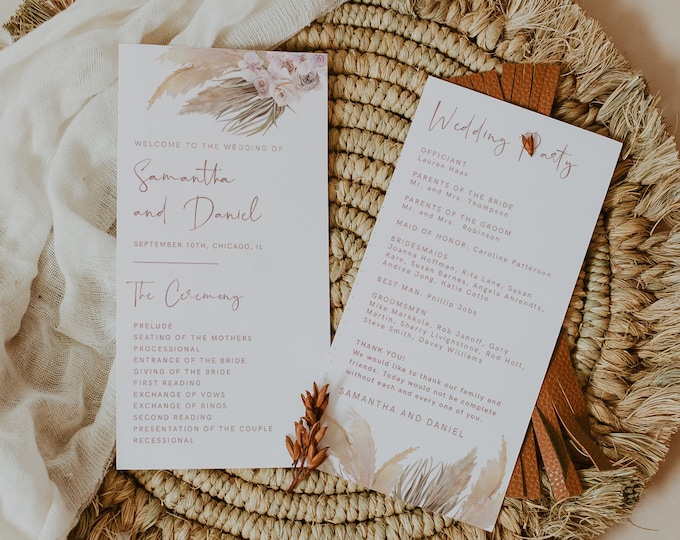 WELCOME TO THE WEDDING OF
Samantha
and Daniel
SEPTEMBER 10TH, CHICAGO, IL
The Ceremony
PRELUDE
SEATING OF THE MOTHERS
PROCESSIONAL
ENTRANCE OF THE BRIDE
GIVING OF THE BRIDE
FIRST READING
EXCHANGE OF VOWS
EXCHANGE OF RINGS
SECOND READING
PRESENTATION OF THE COUPLE
RECESSIONAL
Wedding Party
OFFICIANT
Lauren Haas
PARENTS OF THE BRIDE
Mr. and Mrs. Thompson
PARENTS OF THE GROOM
Mr. and Mrs. Robinson
MAID OF HONOR: Caroline Patterson
BRIDESMAIDS
Joanna Hoffman, Rita Lane, Susan
Kare, Susan Barnes, Angela Ahrendts,
Andrea Jung, Katie Cotto
BEST MAN: Phillip Jobs
GROOMSMEN
Mike Markkula, Rob Janoff, Gary
Martin, Sherry Livingstone, Rod Holt,
Steve Smith, Davey Williams
THANK YOU!
We would like to thank our family and
friends. Today would not be complete
without each and every one of you.
SAMANTHA AND DANIEL